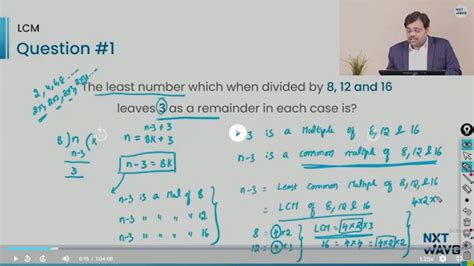 LCM
NXT WAVE
Question #1
The least number which when divided by 8, 12 and 16
leaves 3 as a remainder in each case is?
2, 4, 6, 8 ...
n-3 + 3
n = 8K + 3
8 ) n ( K
n-3
3
n-3 = 8K
n-3 is a Mul of 8
n-3 " " " 12
n-3 " " " 16
-3 is a Multiple of 8, 12 & 16
n-3 is a common multiple of 8, 12 & 16
n-3 = Least Common Multiple of 8, 12 & 16
= LCM of 8, 12 & 16
4×2×
8 = 4×2
LCM = 4×2×3
12 = 4×3
16 = 4×4 = 4×2×2
NXT
WAVE
6:15 / 1:04:08
1.25x